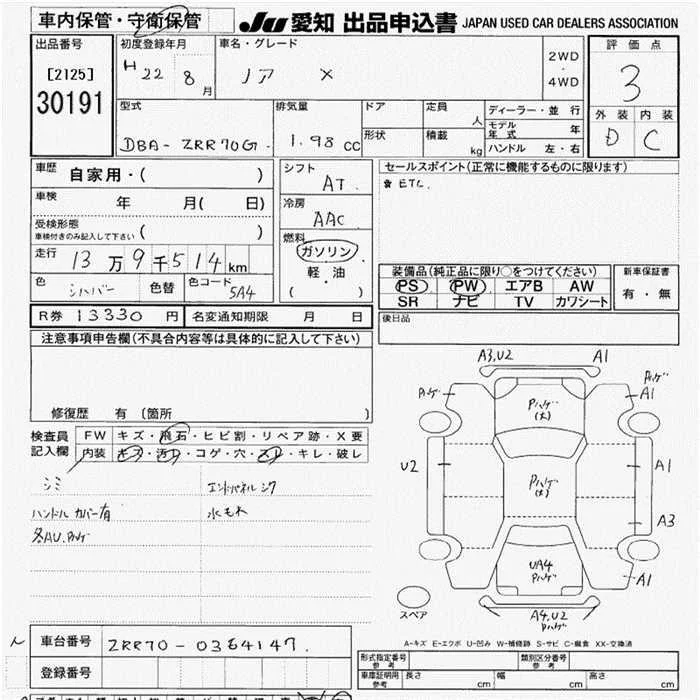 車内保管・守衛保管
JU 愛知 出品申込書 JAPAN USED CAR DEALERS ASSOCIATION
出品番号
[2125]
30191
初度登録年月
H 22 8 月
車名・グレード
ノア X
2WD
・
4WD
評価点
3
外装 内装
D C
型式
DBA-ZRR70G
排気量
1.98 cc
ドア
形状
定員 人
積載 kg
ディーラー・並行
モデル年式 年
ハンドル 左・右
車歴
自家用・( )
車検
年 月( 日)
受検形態
車検付きのみ記入して下さい ( )
走行
13万9千514km
色 シルバー 色替 色コード 5A4
シフト
AT
冷房
AAC
燃料
ガソリン
軽・油
( )
セールスポイント(正常に機能するものに限ります)
★ETC.
装備品(純正品に限り○をつけてください)
PS PW エアB AW
SR ナビ TV カワシート
新車保証書
有・無
後日品
R券 13330円 名変通知期限 月 日
注意事項申告欄(不具合内容等は具体的に記入して下さい)
修復歴 有 (箇所 )
検査員
記入欄
FW キズ・飛石・ヒビ割・リペア跡・X要
内装 キズ・汚レ・コゲ・穴・スレ・キレ・破レ
シミ エンドパネルシワ
ハンドルカバー有 水モレ
各AU.Pハゲ
A3,U2 A1
Pハゲ Pハゲ
A1
Pハゲ
(大)
U2
A1
Pハゲ
(大)
A3
UA4
Pハゲ
A1
スペア
A4,U2
Pハゲ
A-キズ E-エクボ U-凹み W-補修跡 S-サビ C-腐食 XX-交換済
車台番号 ZRR70-0364147
登録番号
形式指定番号
参考
類別区分番号
参考
車庫証明用
参考
長さ cm 幅 cm 高さ cm